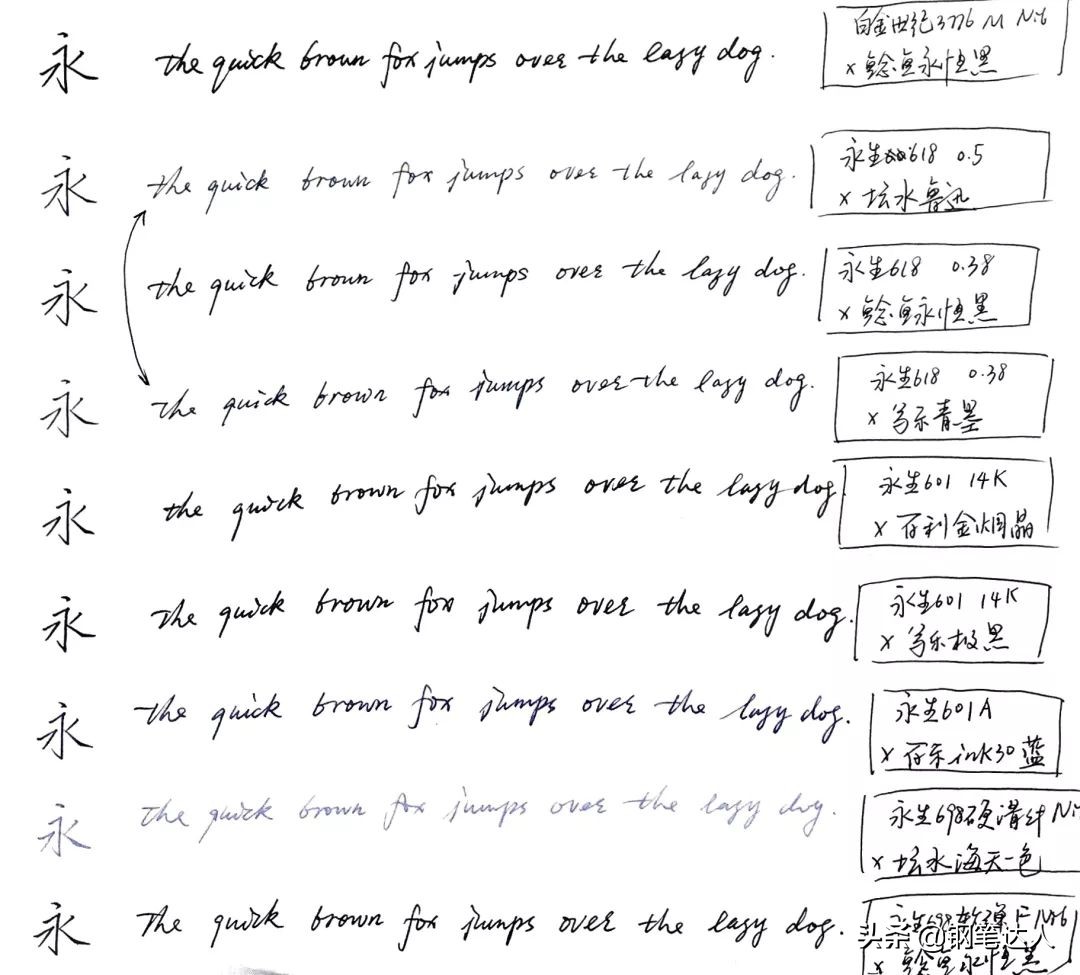 永 the quick brown fox jumps over the lazy dog. 白金世纪3776 M Nib
x 鲶鱼永恒黑
永 the quick brown fox jumps over the lazy dog. 永生618 0.5
x 坛水鲁迅
永 the quick brown fox jumps over the lazy dog. 永生618 0.38
x 鲶鱼永恒黑
永 the quick brown fox jumps over the lazy dog. 永生618 0.38
x 写乐青墨
永 the quick brown fox jumps over the lazy dog. 永生601 14K
x 百利金烟晶
永 the quick brown fox jumps over the lazy dog. 永生601 14K
x 写乐极黑
永 the quick brown fox jumps over the lazy dog. 永生601A
x 百乐ink30 蓝
永 the quick brown fox jumps over the lazy dog. 永生698硬 Ni
x 坛水海天一色
永 the quick brown fox jumps over the lazy dog. 永生698软弹F Nib
x 鲶鱼永恒黑
头条 @钢笔达人